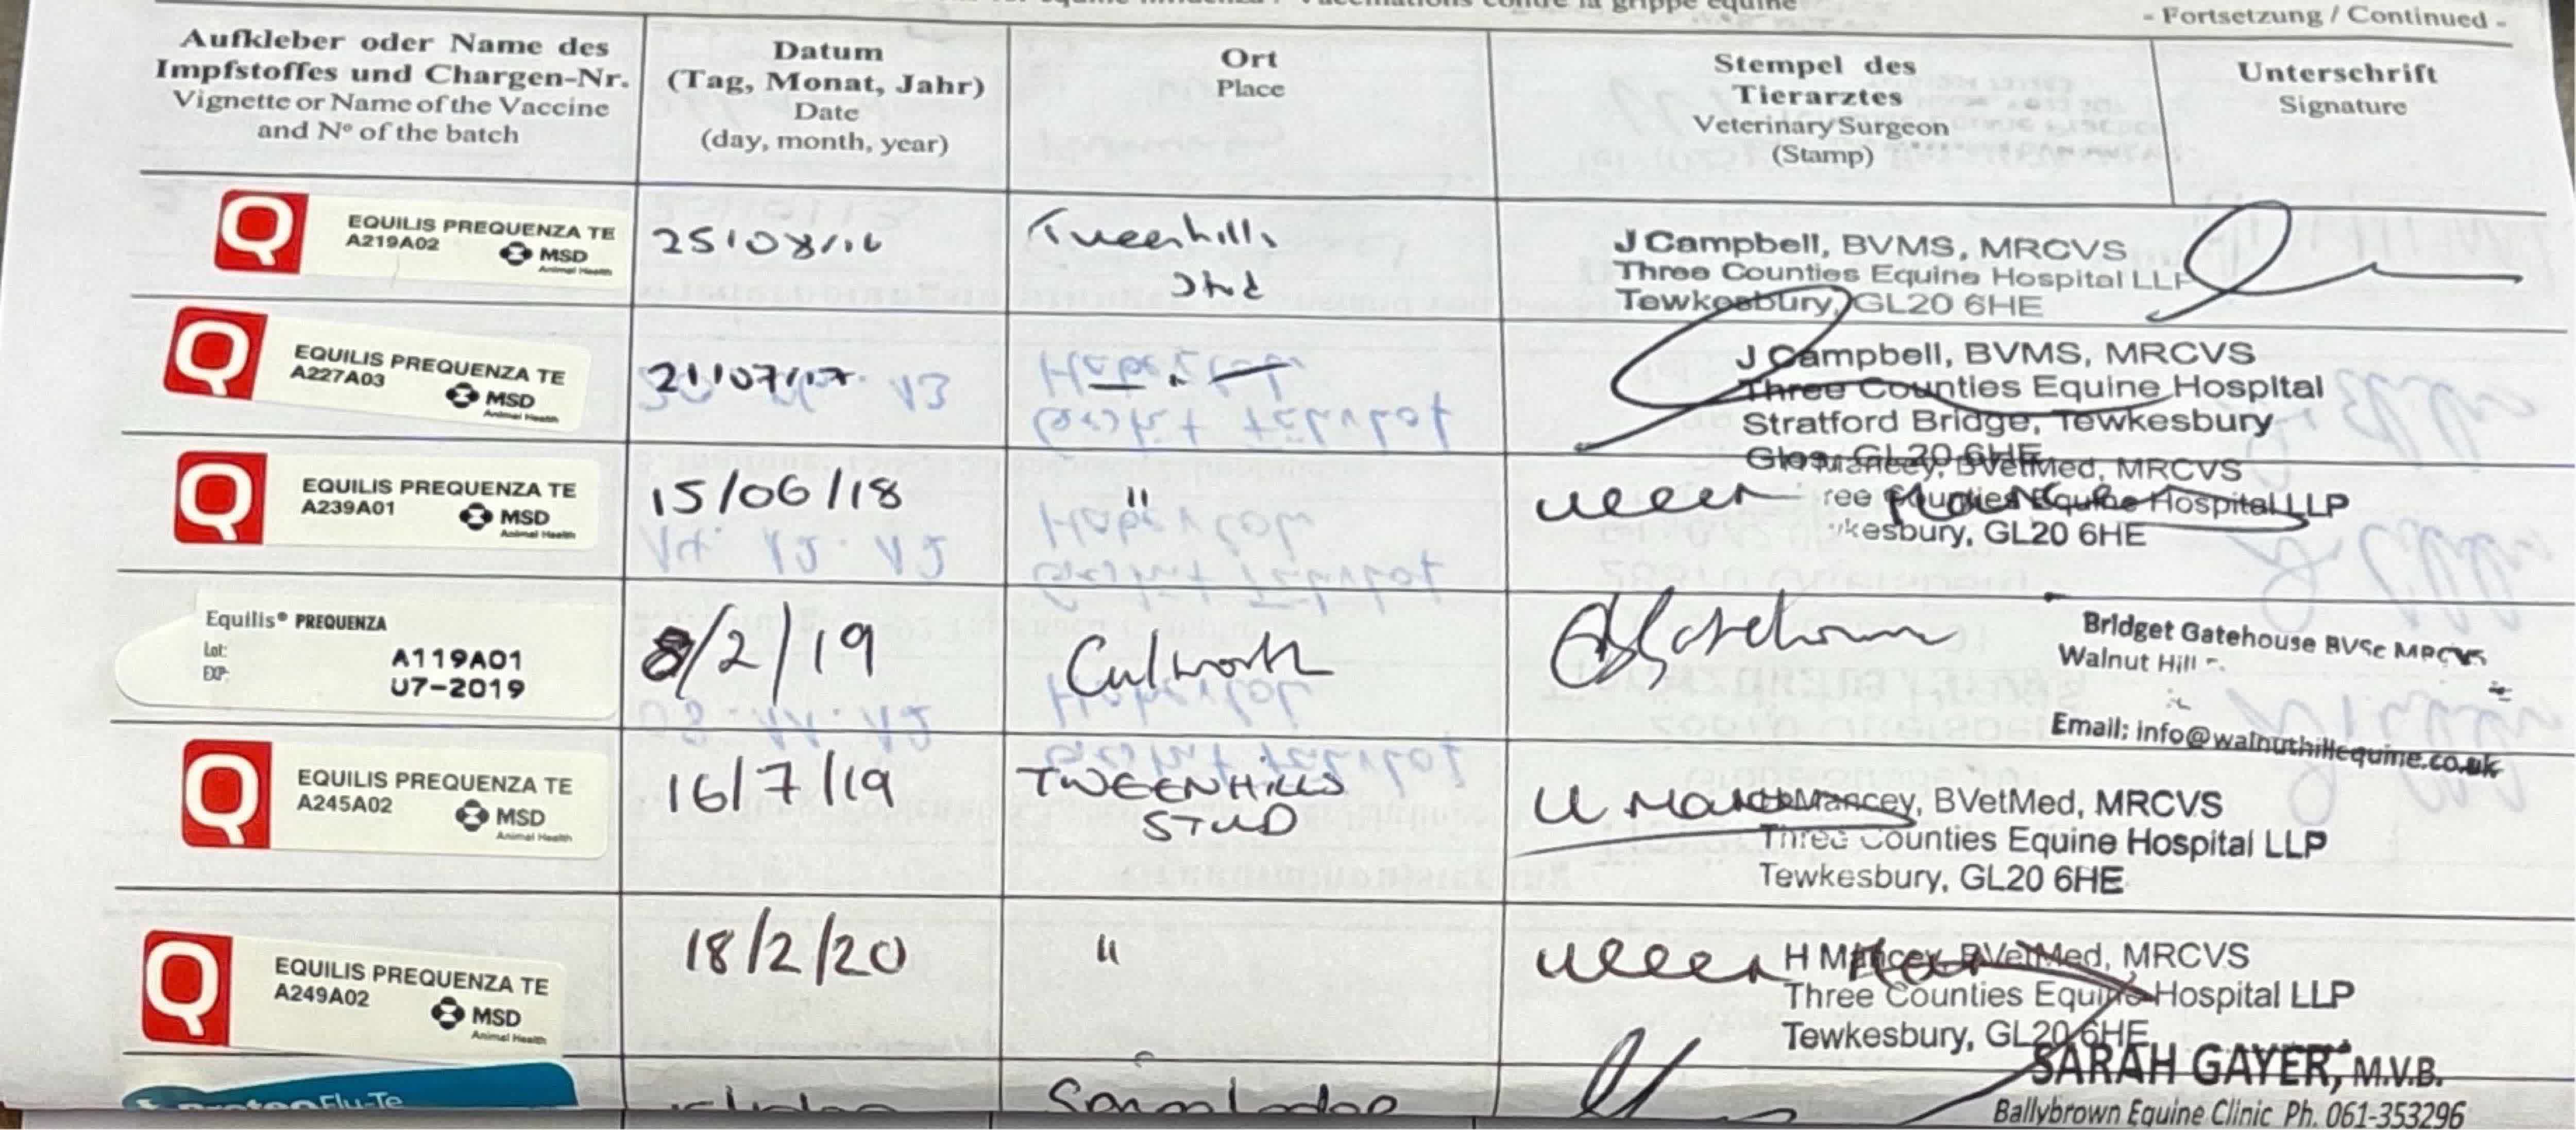 contre la grippe equine
- Fortsetzung / Continued -
Aufkleber oder Name des
Impfstoffes und Chargen-Nr.
Vignette or Name of the Vaccine
and Nº of the batch
Datum
(Tag, Monat, Jahr)
Date
(day, month, year)
Ort
Place
Stempel des
Tierarztes
Veterinary Surgeon
(Stamp)
Unterschrift
Signature
Q
EQUILIS PREQUENZA TE
A219A02
MSD
Animal Health
25/08/16
Tweenhills
Stud
J Campbell, BVMS, MRCVS
Three Counties Equine Hospital LLP
Tewkesbury, GL20 6HE
Q
EQUILIS PREQUENZA TE
A227A03
MSD
Animal Health
21/07/17
— " —
J Campbell, BVMS, MRCVS
Three Counties Equine Hospital
Stratford Bridge, Tewkesbury
Glos, GL20 6HE
Q
EQUILIS PREQUENZA TE
A239A01
MSD
Animal Health
15/06/18
"
Mancey, BVetMed, MRCVS
ree Counties Equine Hospital LLP
kesbury, GL20 6HE
Equilis® PREQUENZA
Lot: A119A01
EXP: 07-2019
8/2/19
Culworth
Bridget Gatehouse BVSc MRCVS
Walnut Hill
Email: info@walnuthillequine.co.uk
Q
EQUILIS PREQUENZA TE
A245A02
MSD
Animal Health
16/7/19
TWEENHILLS
STUD
H Mancey, BVetMed, MRCVS
Three Counties Equine Hospital LLP
Tewkesbury, GL20 6HE
Q
EQUILIS PREQUENZA TE
A249A02
MSD
Animal Health
18/2/20
"
H Mancey, BVetMed, MRCVS
Three Counties Equine Hospital LLP
Tewkesbury, GL20 6HE
Flu-Te
SARAH GAYER, M.V.B.
Ballybrown Equine Clinic Ph. 061-353296